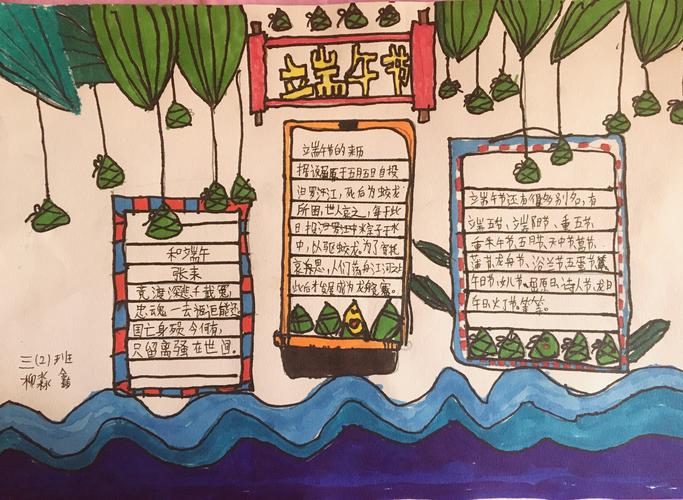 立端午节
立端午节的来历
据说屈原于五月五日自投
汨罗江,死后为蛟龙
所困,世人哀之,每于此
日投
中,以驱蛟龙。为了寄托
哀思,人们荡舟江河之上
此后才发展成为龙舟竞赛。
和端午
张耒
竞渡深悲千载冤,
忠魂一去讵能还
国亡身殒今何有,
只留离骚在世间。
端午节还有很多别名,有
端五节、端阳节、重五节、
重午节、五月节、天中节
龙舟节、浴兰节
午日节、女儿节、 诗人节、龙日
午日 灯节、等等。
三(2)班
柳淼鑫